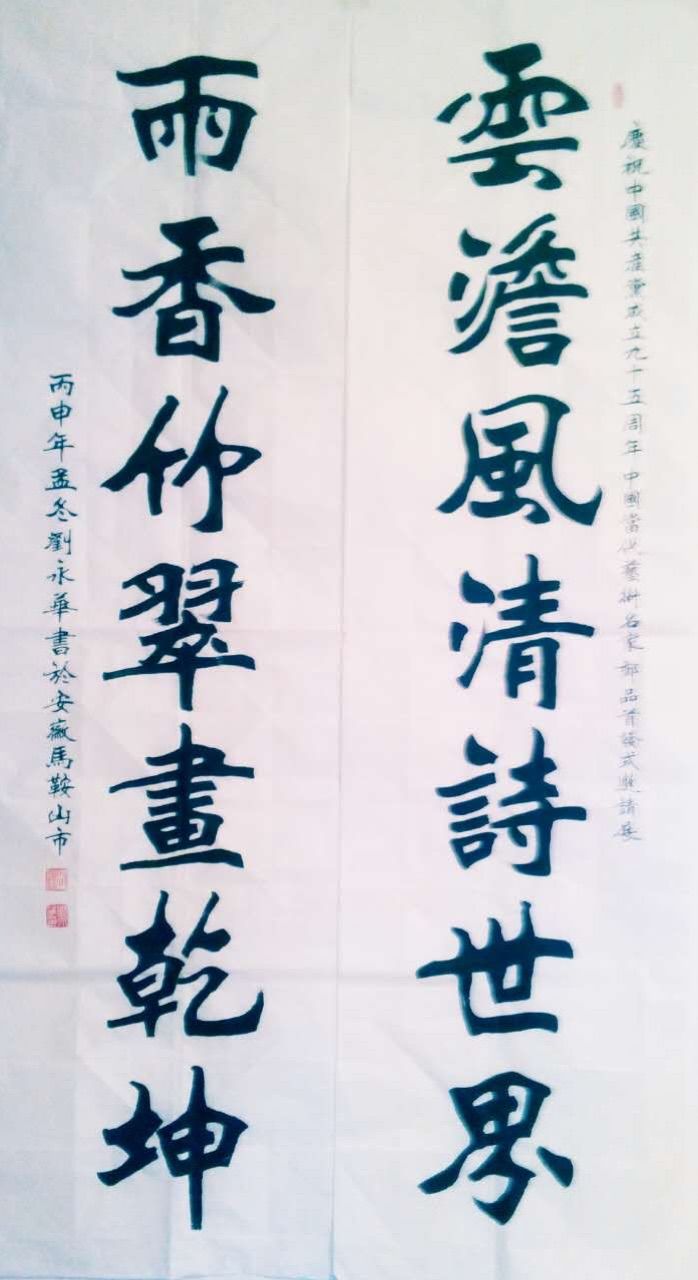 慶祝中國共產黨成立九十五周年中國當代藝術名家郵品首發式邀請展
雲澹風清詩世界
雨香竹翠畫乾坤
丙申年孟冬劉永華書於安徽馬鞍山市